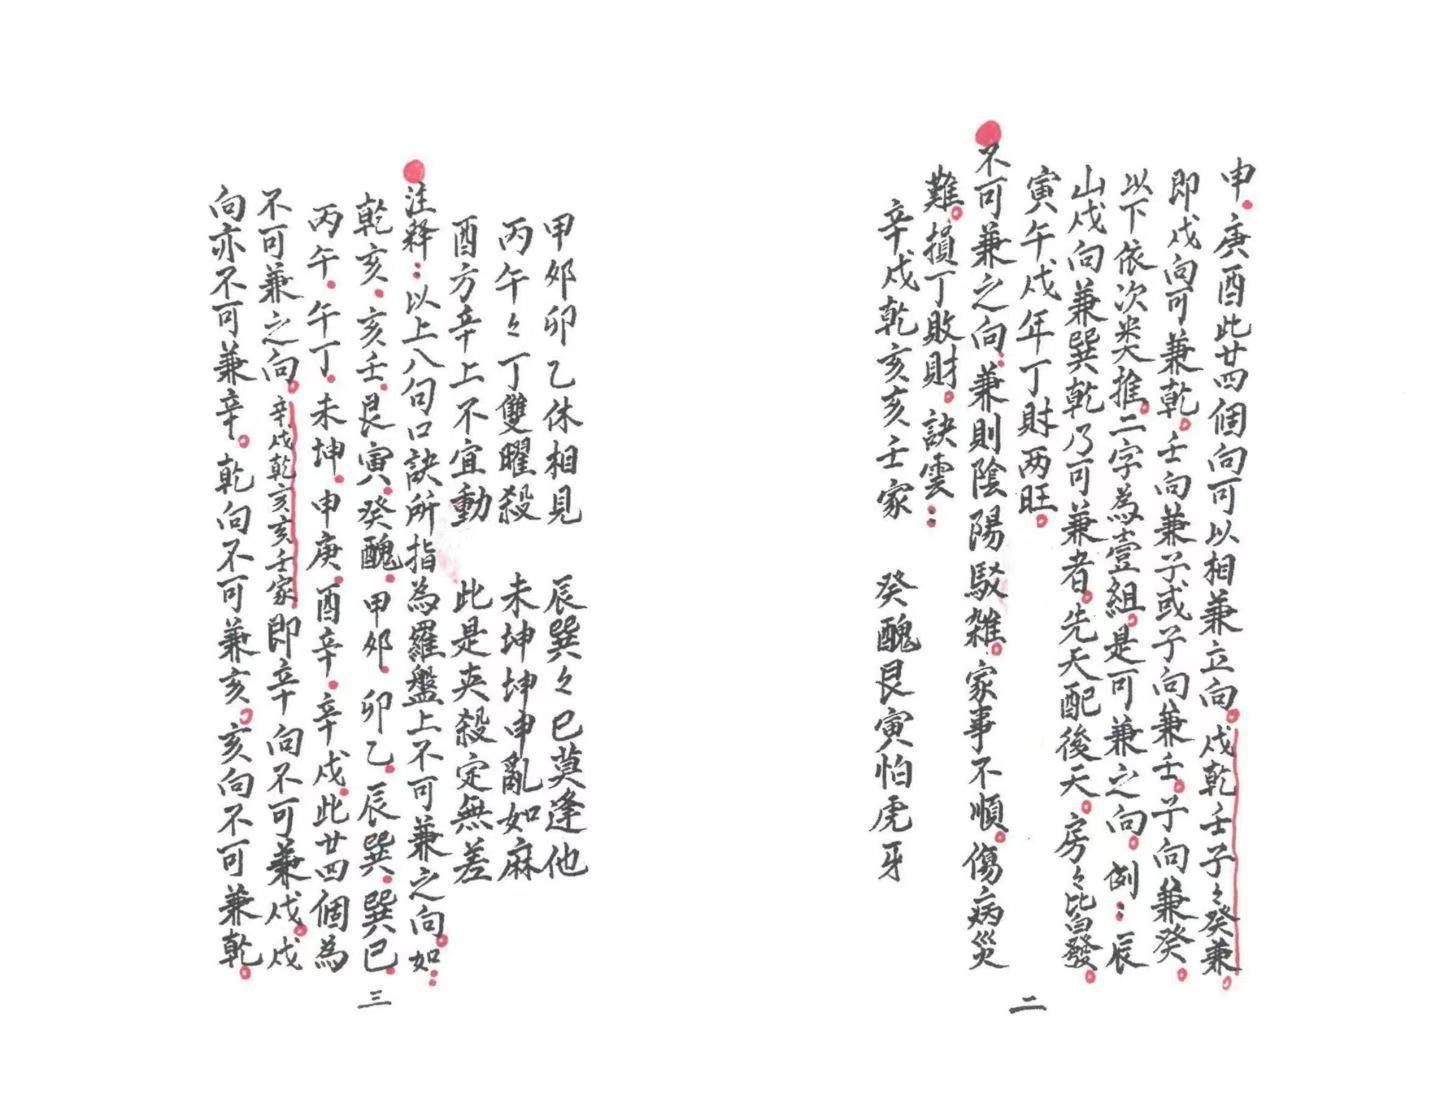 申。庚酉此廿四個向可以相兼立向。戌乾壬子々癸兼。
即戌向可兼乾。壬向兼子或子向兼壬。子向兼癸。
以下依次类推。二字為壹組。是可兼之向。例：辰
山戌向兼巽乾乃可兼者。先天配後天。房々皆發。
寅午戌年丁財两旺。
不可兼之向：兼則陰陽駁雜。家事不順。傷病災
難。損丁敗財。訣雲：
辛戌乾亥亥壬家　癸醜艮寅怕虎牙
二
甲夘卯乙休相見　辰巽々巳莫逢他
丙午々丁雙曜殺　未坤坤申亂如麻
酉方辛上不宜動　此是夾殺定無差
注释：以上八句口訣所指為羅盤上不可兼之向。如：
乾亥.亥壬.艮寅.癸醜.甲夘.卯乙.辰巽.巽巳.
丙午.午丁.未坤.申庚.酉辛.辛戌.此廿四個為
不可兼之向。辛戌乾亥亥壬家。即辛向不可兼戌。戌
向亦不可兼辛。乾向不可兼亥。亥向不可兼乾。
三